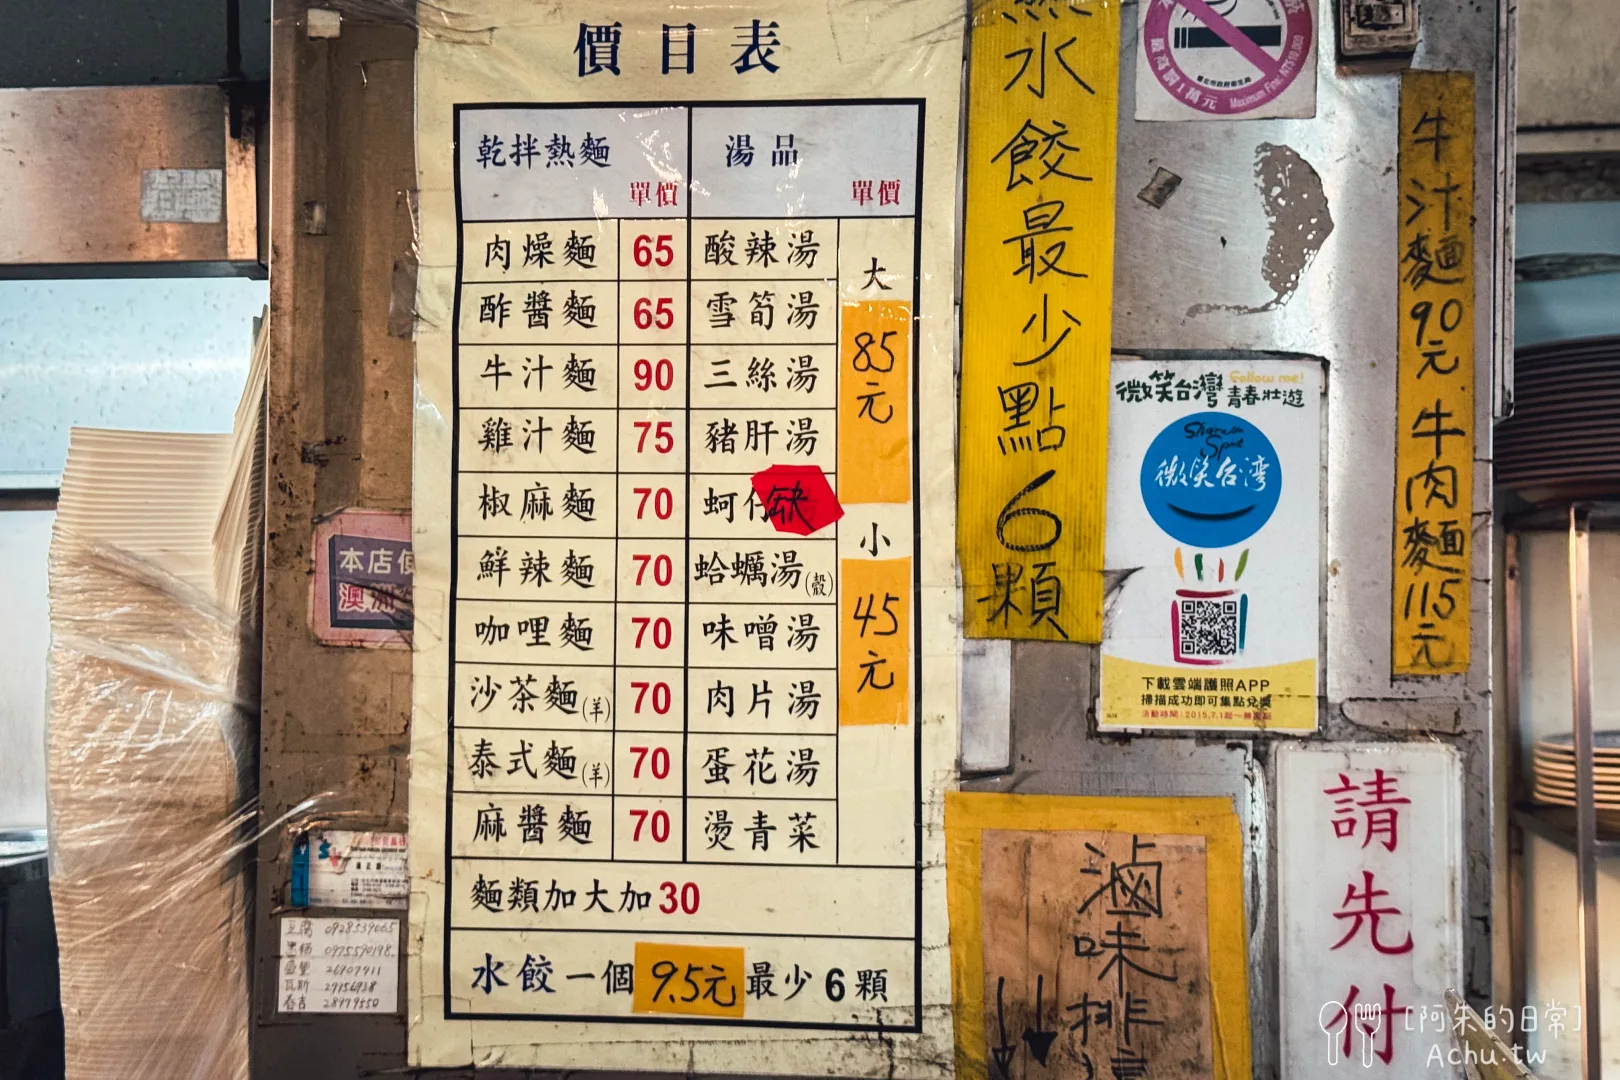 價目表
乾拌熱麵 單價
湯品 單價
肉燥麵 65 酸辣湯
酢醬麵 65 雪筍湯
牛汁麵 90 三絲湯
雞汁麵 75 豬肝湯
椒麻麵 70 蚵仔 缺
鮮辣麵 70 蛤蠣湯(殼)
咖哩麵 70 味噌湯
沙茶麵(羊) 70 肉片湯
泰式麵(羊) 70 蛋花湯
麻醬麵 70 燙青菜
大
85
元
小
45
元
麵類加大加30
水餃一個9.5元最少6顆
水餃最少點6顆
最高罰1萬元 Maximum Fine: NT$10,000
牛汁麵90元 牛肉麵115元
微笑台灣 Follow me!
青春壯遊
微笑台灣
下載雲端護照APP
掃描成功即可集點兌獎
請先付
滷味
本店使
澳洲
豆腐 0928539665
瓦斯 29156938
春吉 28979550
[阿朱的日常]
Achu.tw